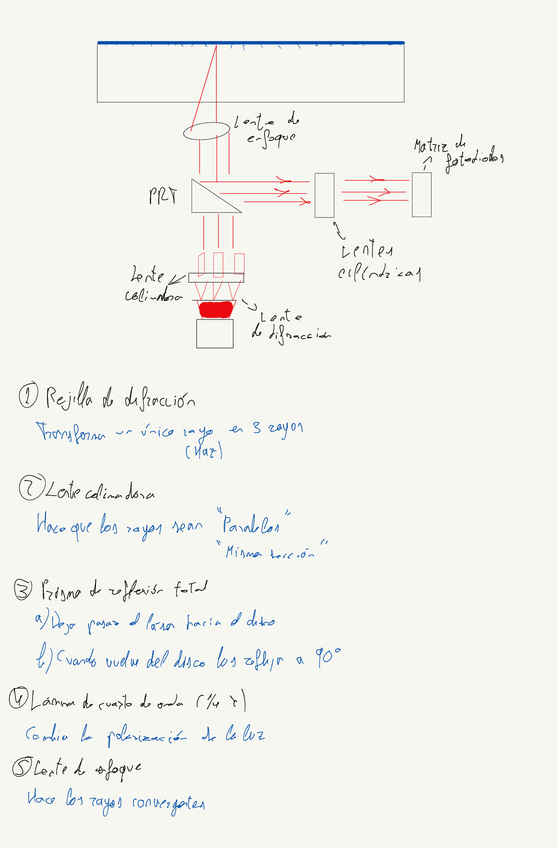 Lente de
enfoque
Matriz de
fotodiodos
PRT
Lentes
cilíndricas
Lente
colimadora
Lente
de difracción
① Rejilla de difracción
Transforma un único rayo en 3 rayos
(Haz)
② Lente colimadora
Hace que los rayos sean "Paralelos"
"Misma dirección"
③ Prisma de reflexión total
a) Deja pasar el láser hacia el disco
b) Cuando vuelve del disco los refleja a 90°
④ Lámina de cuarto de onda (1/4 λ)
Cambia la polarización de la luz
⑤ Lente de enfoque
Hace los rayos convergentes